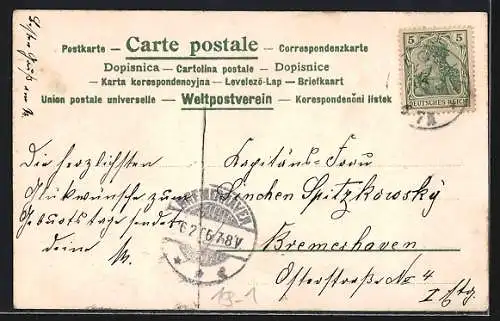 Postkarte – Carte postale – Correspondenzkarte
Dopisnica – Cartolina postale – Dopisnice
Karta korespondencyjna – Levelező-Lap – Briefkaart
Union postale universelle – Weltpostverein – Korespondenční listek
5 5
DEUTSCHES REICH
Die herzlichsten
Glückwünsche zum
Geburtstage sendet
deine M.
Kapitäns-Frau
Lenchen Spitzkowsky
Bremerhaven
Osterstraße No 4
I Etg.
BREMERHAVEN
6.2.06.7-8V
13-1